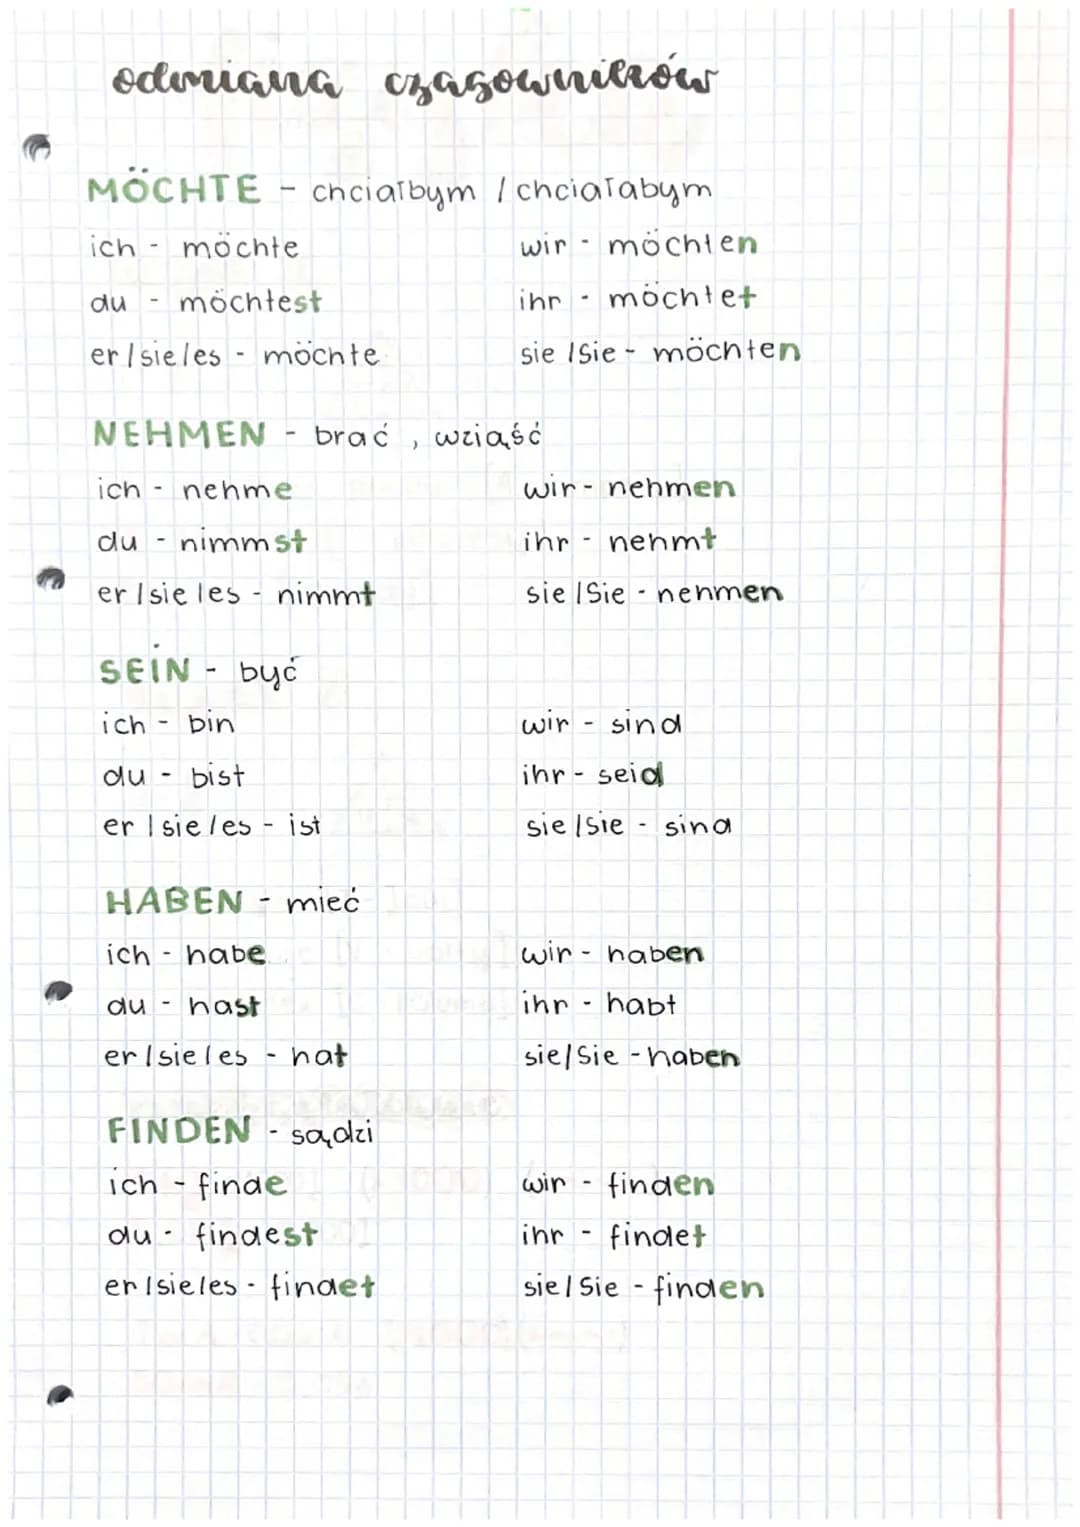 odmiana czasowników
MÖCHTE - chciałbym / chciałabym
ich - möchte wir - möchten
du - möchtest ihr - möchtet
er/sie/es - möchte sie/Sie - möchten
NEHMEN - brać, wziąść
ich - nehme wir - nehmen
du - nimmst ihr - nehmt
er/sie/es - nimmt sie/Sie - nehmen
SEIN - być
ich - bin wir - sind
du - bist ihr - seid
er/sie/es - ist sie/Sie - sind
HABEN - mieć
ich - habe wir - haben
du - hast ihr - habt
er/sie/es - hat sie/Sie - haben
FINDEN - sądzi
ich - finde wir - finden
du - findest ihr - findet
er/sie/es - findet sie/Sie - finden